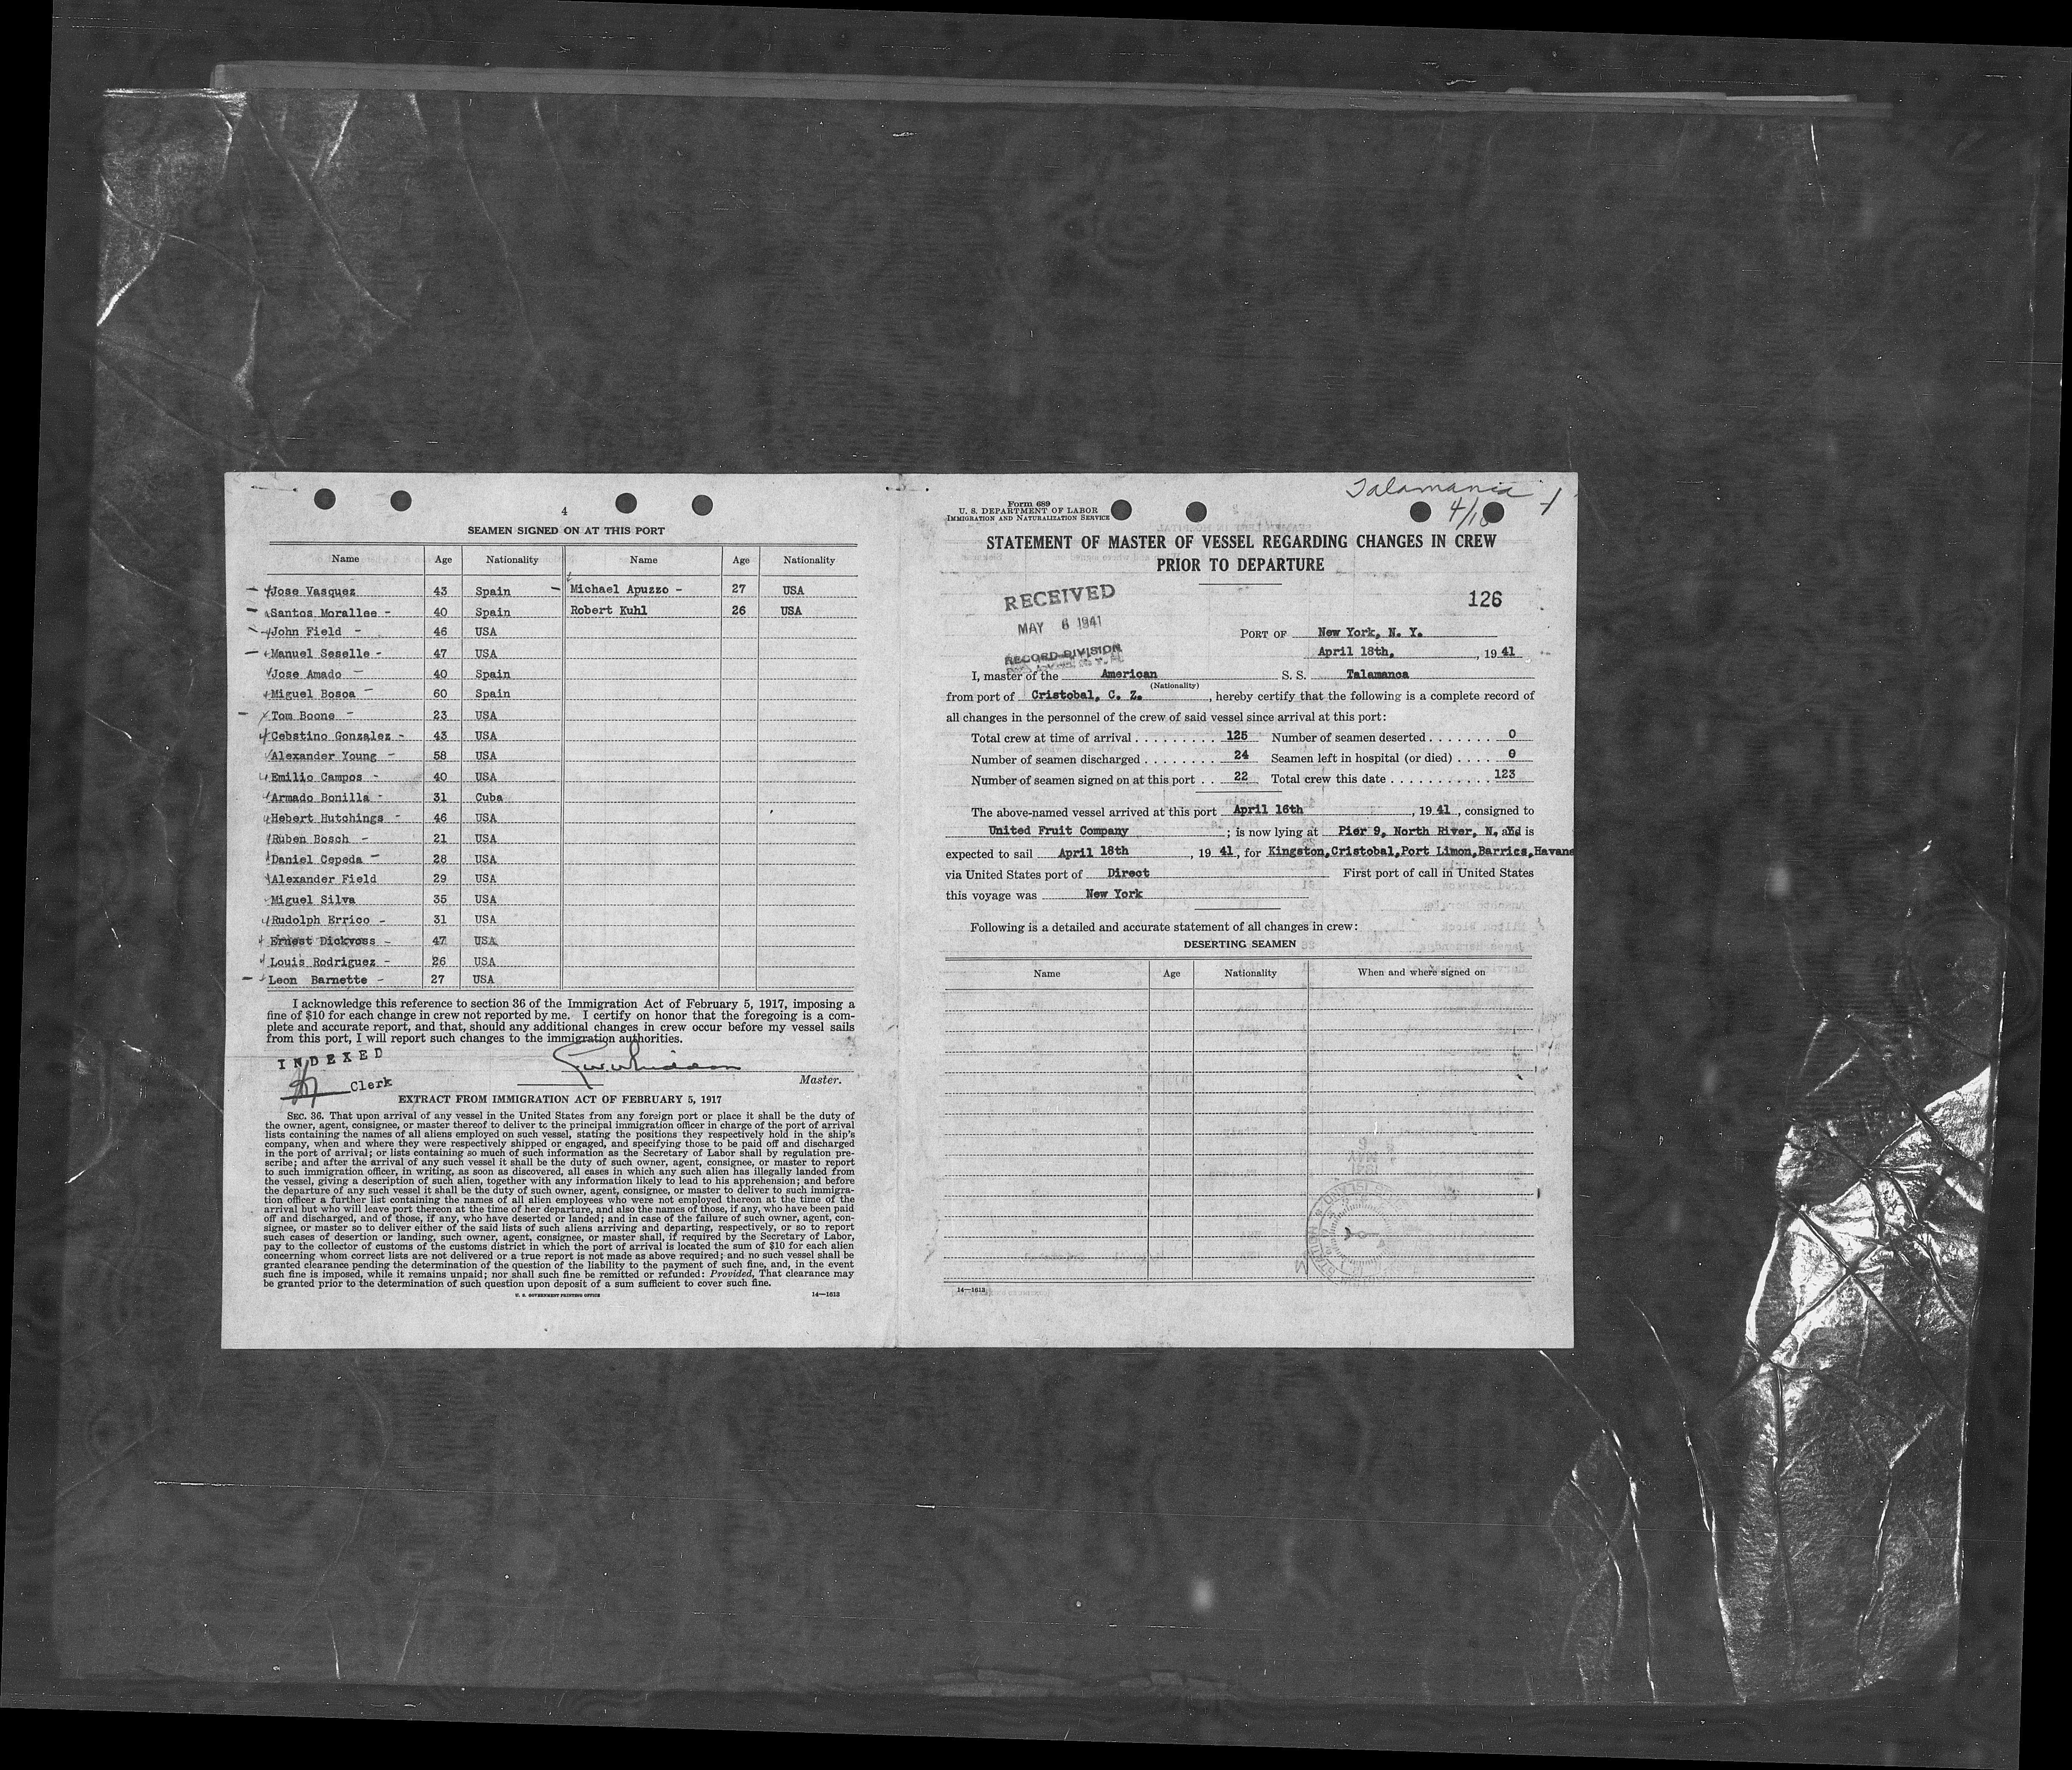 4
SEAMEN SIGNED ON AT THIS PORT
Name Age Nationality Name Age Nationality
Jose Vasquez 43 Spain Michael Apuzzo - 27 USA
Santos Morallee - 40 Spain Robert Kuhl 26 USA
John Field - 46 USA
Manuel Seselle - 47 USA
Jose Amado - 40 Spain
Miguel Bosoa - 60 Spain
Tom Boone - 23 USA
Cebstino Gonzalez - 43 USA
Alexander Young - 58 USA
Emilio Campos - 40 USA
Armado Bonilla - 31 Cuba
Hebert Hutchings - 46 USA
Ruben Bosch - 21 USA
Daniel Cepeda - 28 USA
Alexander Field 29 USA
Miguel Silva 35 USA
Rudolph Errico - 31 USA
Ernest Dickvoss - 47 USA
Louis Rodriguez - 26 USA
Leon Barnette - 27 USA
I acknowledge this reference to section 36 of the Immigration Act of February 5, 1917, imposing a
fine of $10 for each change in crew not reported by me. I certify on honor that the foregoing is a com-
plete and accurate report, and that, should any additional changes in crew occur before my vessel sails
from this port, I will report such changes to the immigration authorities.
INDEXED
Clerk
Master.
EXTRACT FROM IMMIGRATION ACT OF FEBRUARY 5, 1917
SEC. 36. That upon arrival of any vessel in the United States from any foreign port or place it shall be the duty of
the owner, agent, consignee, or master thereof to deliver to the principal immigration officer in charge of the port of arrival
lists containing the names of all aliens employed on such vessel, stating the positions they respectively hold in the ship's
company, when and where they were respectively shipped or engaged, and specifying those to be paid off and discharged
in the port of arrival; or lists containing so much of such information as the Secretary of Labor shall by regulation pre-
scribe; and after the arrival of any such vessel it shall be the duty of such owner, agent, consignee, or master to report
to such immigration officer, in writing, as soon as discovered, all cases in which any such alien has illegally landed from
the vessel, giving a description of such alien, together with any information likely to lead to his apprehension; and before
the departure of any such vessel it shall be the duty of such owner, agent, consignee, or master to deliver to such immigra-
tion officer a further list containing the names of all alien employees who were not employed thereon at the time of the
arrival but who will leave port thereon at the time of her departure, and also the names of those, if any, who have been paid
off and discharged, and of those, if any, who have deserted or landed; and in case of the failure of such owner, agent, con-
signee, or master so to deliver either of the said lists of such aliens arriving and departing, respectively, or so to report
such cases of desertion or landing, such owner, agent, consignee, or master shall, if required by the Secretary of Labor,
pay to the collector of customs of the customs district in which the port of arrival is located the sum of $10 for each alien
concerning whom correct lists are not delivered or a true report is not made as above required; and no such vessel shall be
granted clearance pending the determination of the question of the liability to the payment of such fine, and, in the event
such fine is imposed, while it remains unpaid; nor shall such fine be remitted or refunded: Provided, That clearance may
be granted prior to the determination of such question upon deposit of a sum sufficient to cover such fine.
U. S. GOVERNMENT PRINTING OFFICE 14—1613
Talamanca
4/18
Form 689
U. S. DEPARTMENT OF LABOR
IMMIGRATION AND NATURALIZATION SERVICE
STATEMENT OF MASTER OF VESSEL REGARDING CHANGES IN CREW
PRIOR TO DEPARTURE
RECEIVED
MAY 6 1941
RECORD DIVISION
126
PORT OF New York, N. Y.
April 18th, , 19 41
I, master of the American S. S. Talamanca
(Nationality)
from port of Cristobal, C. Z. , hereby certify that the following is a complete record of
all changes in the personnel of the crew of said vessel since arrival at this port:
Total crew at time of arrival . . . . . . . . . 125 Number of seamen deserted . . . . . . . 0
Number of seamen discharged . . . . . . . . 24 Seamen left in hospital (or died) . . . . 0
Number of seamen signed on at this port . . 22 Total crew this date . . . . . . . . . . . 123
The above-named vessel arrived at this port April 16th , 19 41 , consigned to
United Fruit Company ; is now lying at Pier 9, North River, N. Y. and is
expected to sail April 18th , 19 41, for Kingston,Cristobal,Port Limon,Barrios,Havana
via United States port of Direct First port of call in United States
this voyage was New York
Following is a detailed and accurate statement of all changes in crew:
DESERTING SEAMEN
Name Age Nationality When and where signed on
14—1613